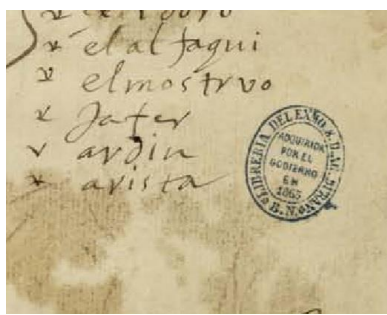 el al faqui
el mostruo
Jafer
ardin
arista
LIBRERIA DEL EXMO. S. D. A. DURAN
ADQUIRIDA
POR EL
GOBIERNO
EN
1863
B. N.